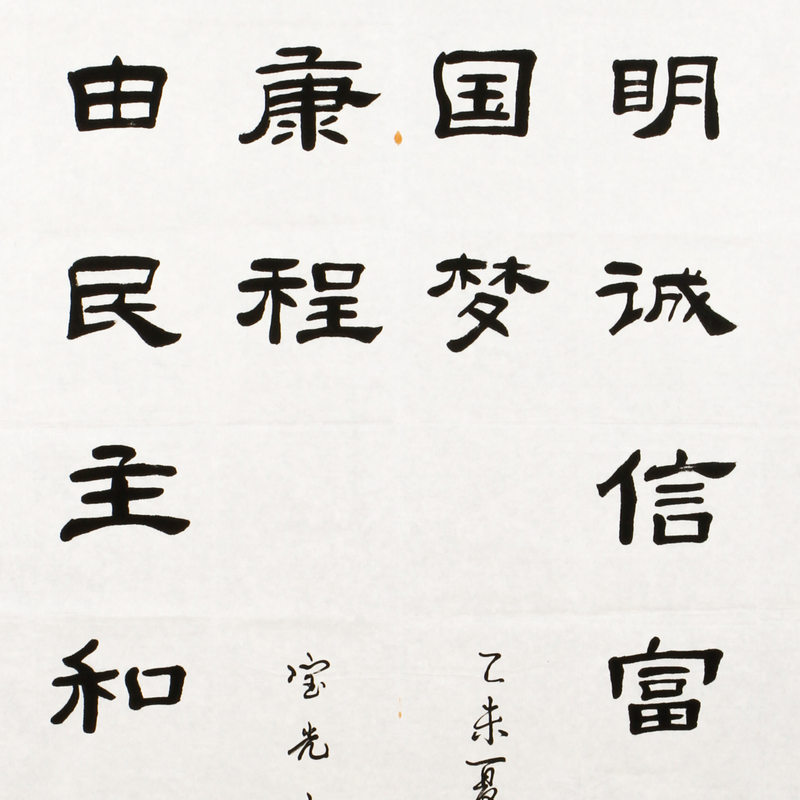 明诚信富
国梦
乙未夏
康程
宝光
由民主和